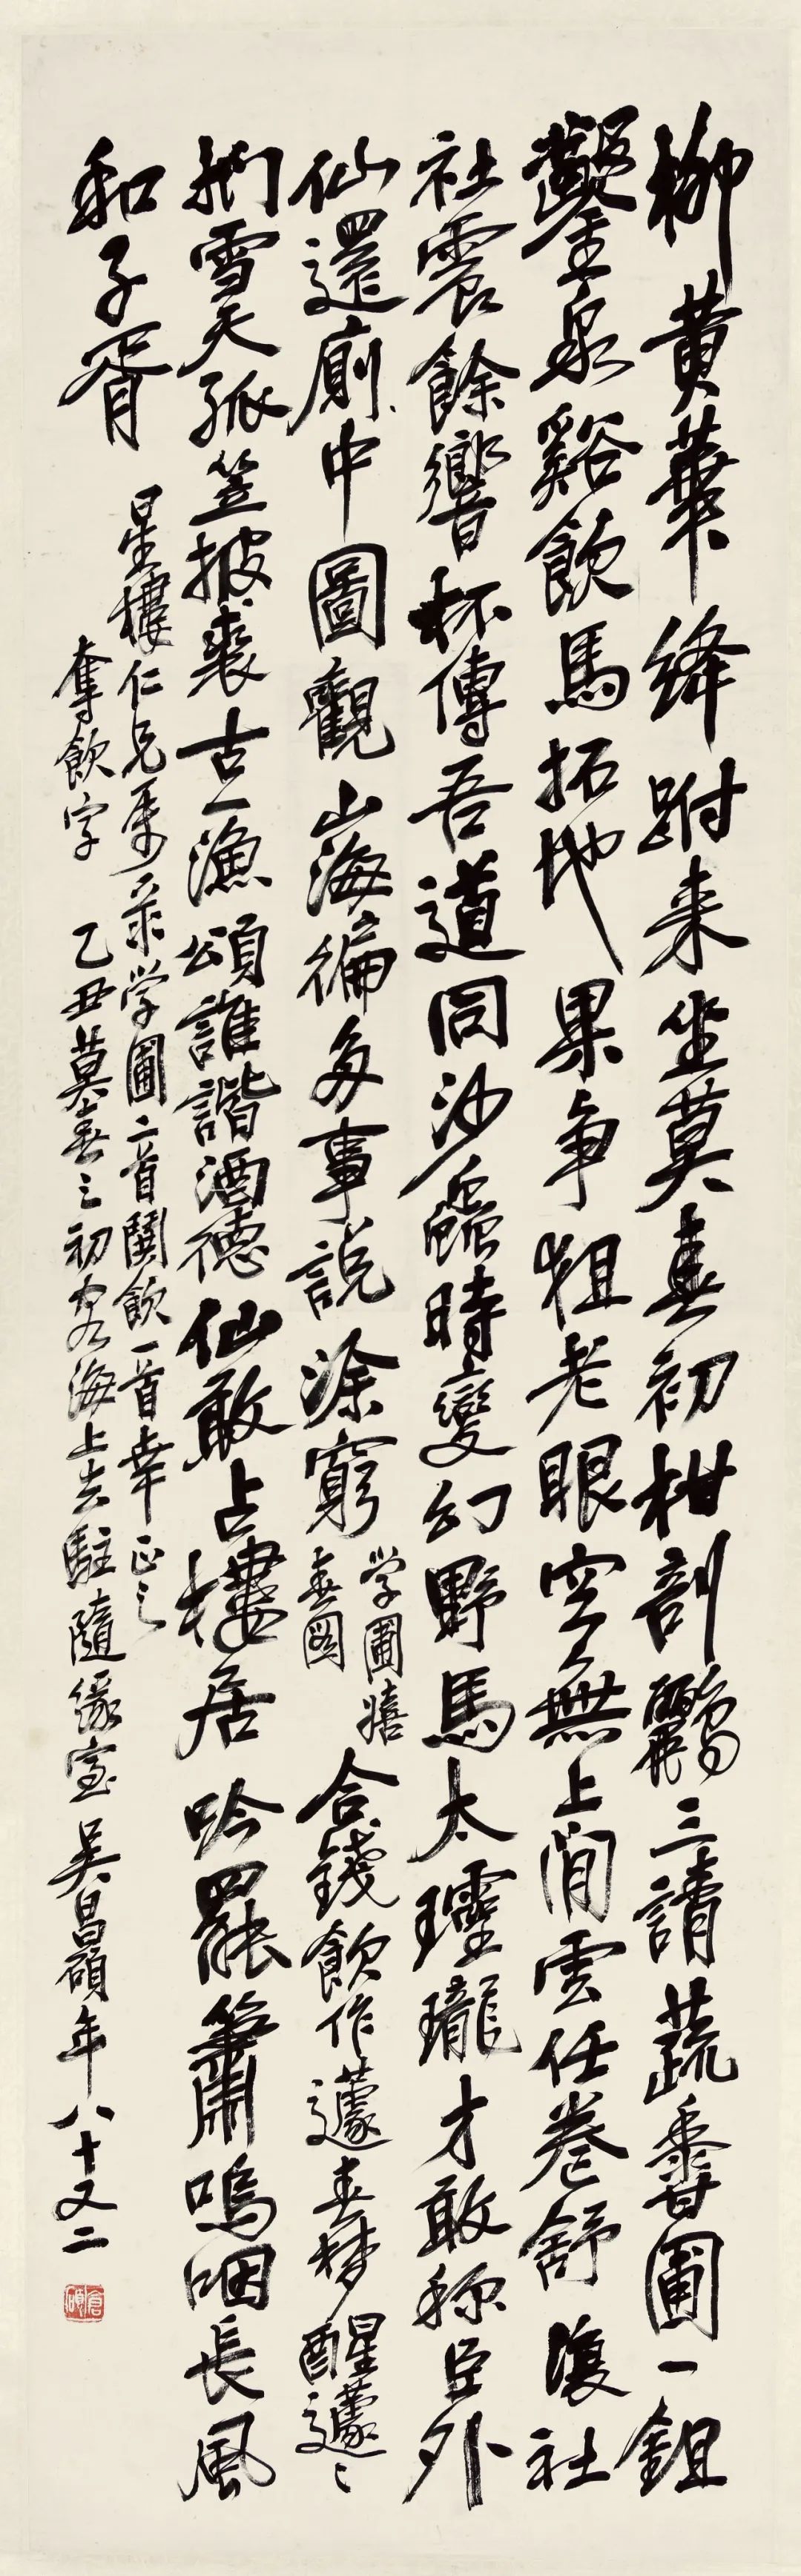 柳黄華絳跗来坐莫春初柑剖鸝三請蔬香圃一鉏
鑿泉谿飲馬拓地果争狙老眼空無上閒雲任卷舒復社
社震餘響杯傳吾道同沙蟲時變幻野馬太瓏才敢称臣外
仙還廁中圖觀山海徧多事說涂窮学圃嬉春図合錢飲作蘧春夢醒蘧〻
捫雪天孤笠披裘古一漁頌誰諧酒德仙敢占樓居吟罷簫嗚咽長風
和子胥
星樓仁兄屬录学圃二首鬨飲一首幸正之
奪飲字 乙丑莫春之初客海上去駐隨緣室吳昌碩年八十又二
倉碩